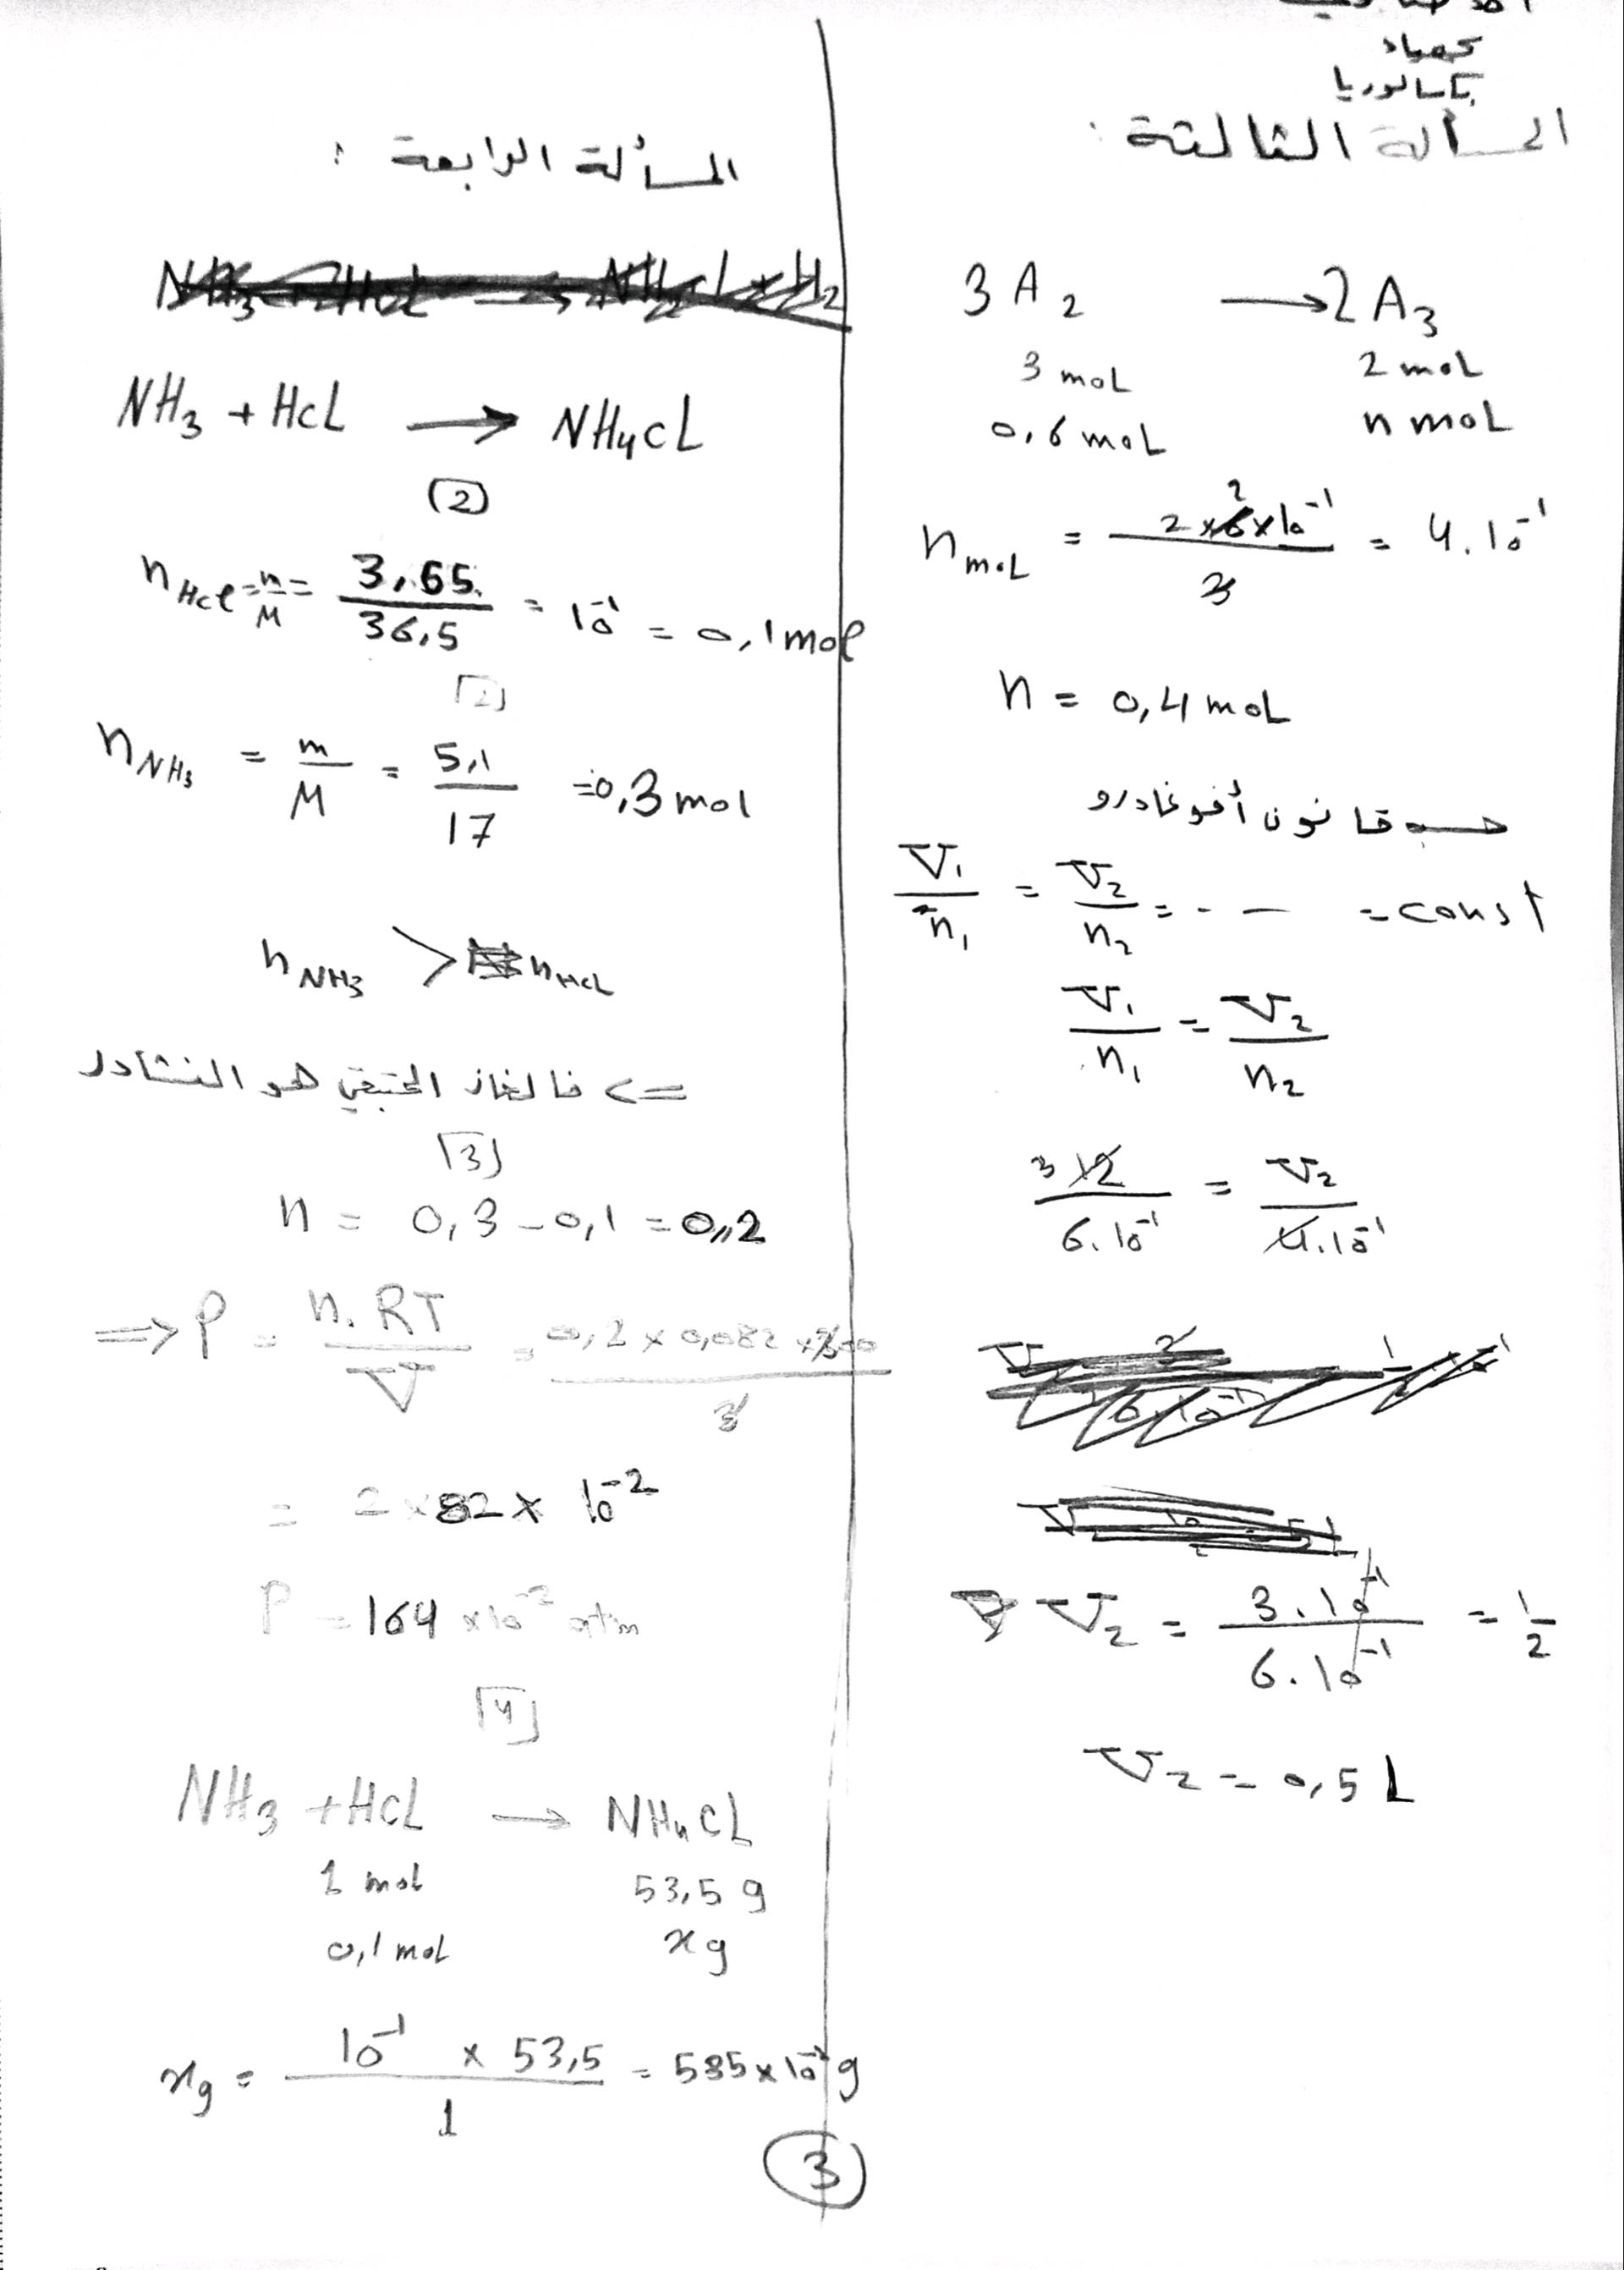 كيمياء
بكالوريا
المسألة الثالثة :
3 A₂ → 2 A₃
3 moL 2 moL
0,6 moL n moL
n moL = 2×6×10⁻¹ / 3 = 4.10⁻¹
n = 0,4 moL
حسب قانون أفوغادرو
V₁/n₁ = V₂/n₂ = - - = const
V₁/n₁ = V₂/n₂
12/6.10⁻¹ = V₂/4.10⁻¹
V₂ = 3.10⁻¹ / 6.10⁻¹ = 1/2
V₂ = 0,5 L
المسألة الرابعة :
NH₃ + HcL → NH₄cL
2
n Hcl = m/M = 3,65 / 36,5 = 10⁻¹ = 0,1 mol
n NH₃ = m/M = 5,1 / 17 = 0,3 mol
n NH₃ > n HcL
=> فالغاز المتبقي هو النشادر
3
n = 0,3 - 0,1 = 0,2
=> P = n.RT / V = 0,2 × 0,082 × 300 / 3
= 2 × 82 × 10⁻²
P = 164 × 10⁻² atm
4
NH₃ + HcL → NH₄CL
1 mol 53,5 g
0,1 mol x g
x g = 10⁻¹ × 53,5 / 1 = 535 × 10⁻² g
3